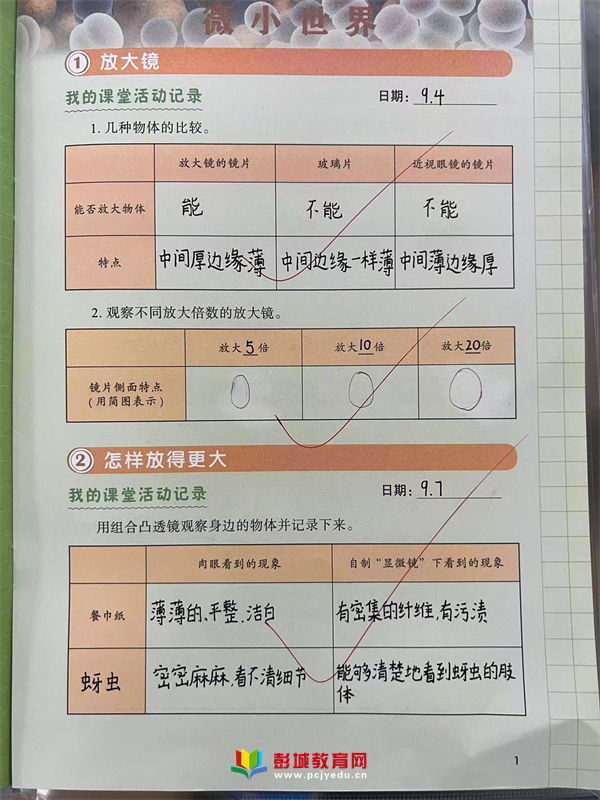 微小世界
1 放大镜
我的课堂活动记录 日期: 9.4
1. 几种物体的比较。
放大镜的镜片 玻璃片 近视眼镜的镜片
能否放大物体 能 不能 不能
特点 中间厚边缘薄 中间边缘一样薄 中间薄边缘厚
2. 观察不同放大倍数的放大镜。
放大5倍 放大10倍 放大20倍
镜片侧面特点
(用简图表示)
2 怎样放得更大
我的课堂活动记录 日期: 9.7
用组合凸透镜观察身边的物体并记录下来。
肉眼看到的现象 自制“显微镜”下看到的现象
餐巾纸 薄薄的、平整、洁白 有密集的纤维,有污渍
蚜虫 密密麻麻,看不清细节 能够清楚地看到蚜虫的肢
体
彭城教育网
www.pcjyedu.cn
1